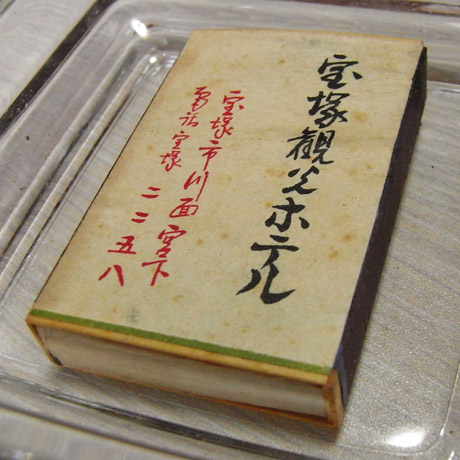 宝塚観光ホテル
宝塚市川面宮下
電話宝塚二二五八